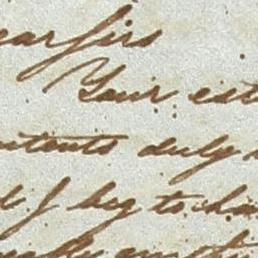 ear sirs
Your est
ntents duly
d. I beg to ha